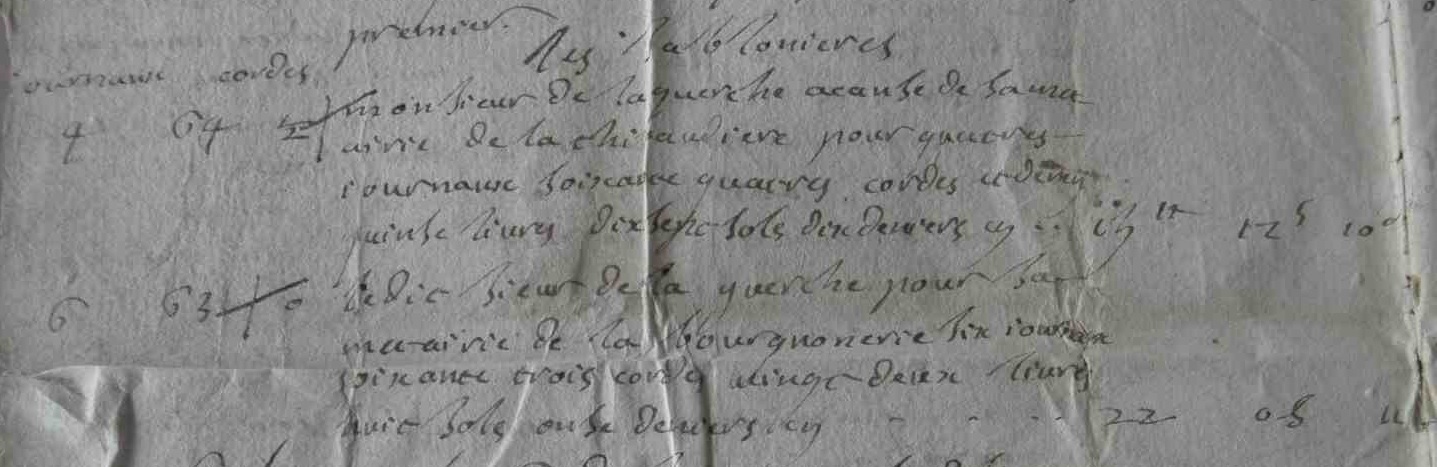 premier.
Les Sablonieres
journaux cordes
4 64 ½ monsieur de laguerche acause de sa mai
airie de la chi audiere pour quatres
journaux soixante quatres cordes et demie
quinse livres dix sept sols dix deniers cy .. 12ˢ 10ᵈ
6 63 0 ledit sieur de la guerche pour sa
metairie de la bourgonerie six journaux
soixante trois cordes vingt deux livres
huit sols onse deniers cy - - .. 22 08 11